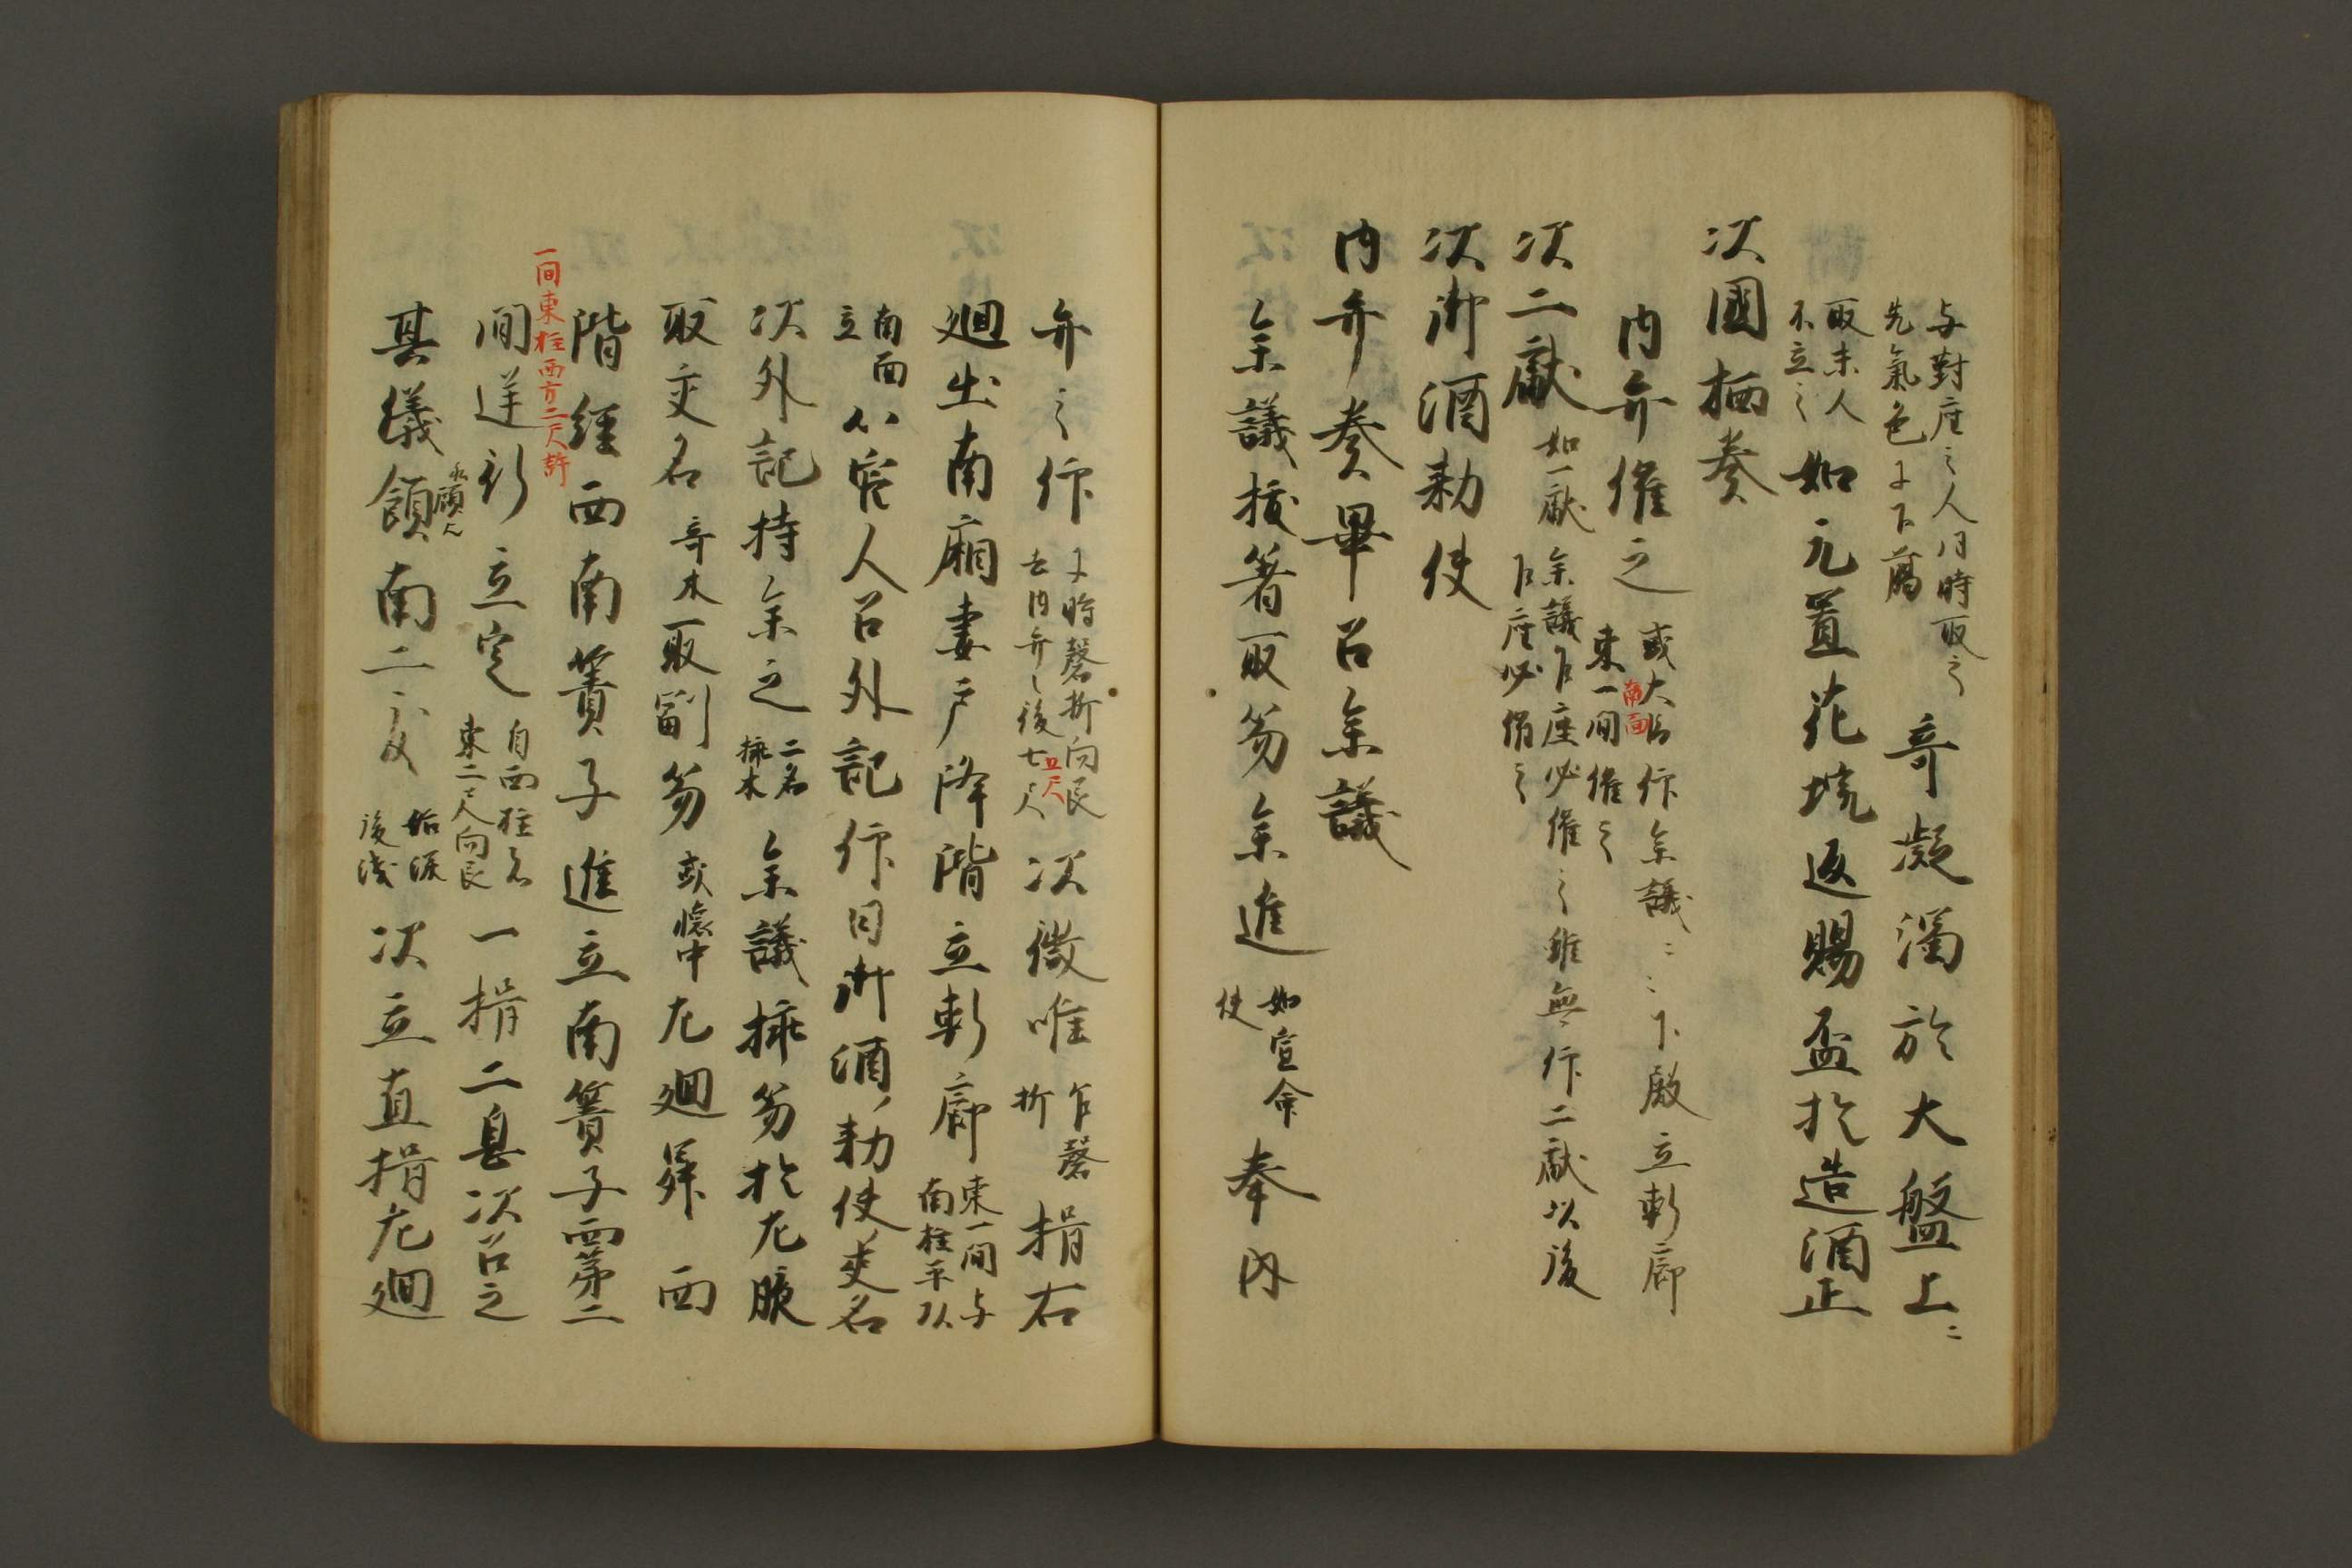 与對座之人同時取之
先氣色于下﨟
奇凝濁於大盤上〻
取未人
不立之
如元置花塊返賜盃於造酒正
次國栖奏
内弁催之
或大臣仰参議〻〻下殿立軒廊
南面
東一間催之
次二献
如一献
参議作座必催之雖無仰二献以後
作座必催之
次御酒勅使
内弁奏畢召参議
参議抜箸取笏参進
如宣命
使
奉内
弁之仰
于時磬折向艮
去内弁之後七尺
五尺
次微唯
乍磬
折
揖右
廻出南廂妻戸降階立軒廊
東一間与
南柱平頭
南面
立
以官人召外記仰同御酒勅使交名
次外記持参之
二名
挿木
参議挿笏於左腋
取交名
奇木
取副笏
或懐中
左廻昇西
階経西南簀子進立南簀子西第二
一間東柱西方二尺許
間逆行立定
自西柱去
東二尺向艮
一揖二息次召之
其儀顧南二音
始深
後浅
次立直揖左廻